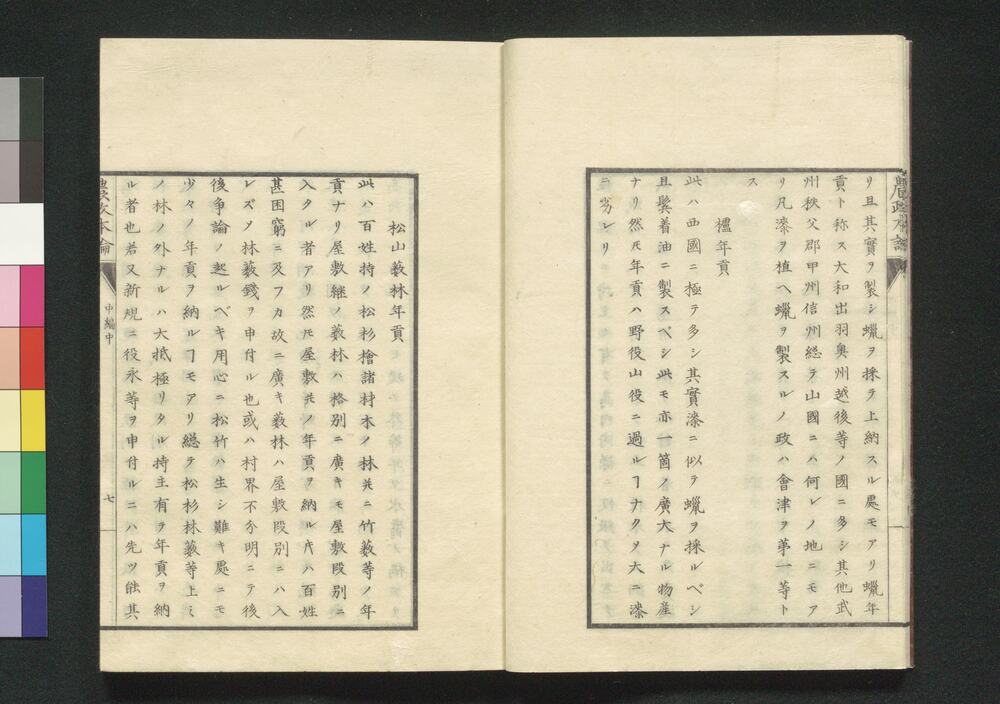 リ且其實ヲ製シ蠟ヲ採ラ上納スル處モアリ蠟年
貢ト称ス大和出羽奥州越後等ノ國ニ多シ其他武
州秩父郡甲州信州総テ山國ニハ何レノ地ニモア
リ凡漆ヲ植ヘ蠟ヲ製スルノ政ハ會津ヲ第一等ト
ス
櫨年貢
此ハ西國ニ極テ多シ其實漆ニ似テ蠟ヲ採ルベシ
且鬂着油ニ製スベシ此モ亦一箇ノ廣大ナル物産
ナリ然𪜈年貢ハ野役山役ニ過ルヿナクメ大ニ漆
ニ劣レリ
松山薮林年貢
此ハ百姓持ノ松杉檜諸材木ノ林𠀋ニ竹薮等ノ年
貢ナリ屋敷継ノ薮林ハ格別ニ廣キモ屋敷段別ニ
入タル者アリ然𪜈屋敷𠀋ノ年貢ヲ納ル𬼂ハ百姓
甚困窮ニ及フカ故ニ廣キ薮林ハ屋敷段別ニハ入
レズソ林薮錢ヲ申付ル也或ハ村界不分明ニテ後
後争論ノ起ルベキ用心ニ松竹ハ生シ難キ處ニモ
少々ノ年貢ヲ納ルヿモアリ総テ松杉林薮等上ミ
ノ林ノ外ナルハ大抵極リタル持主有ヲ年貢ヲ納
ル者也若又新規ニ役永等ヲ申付ルニハ先ツ能其
農政本論
中編中
七